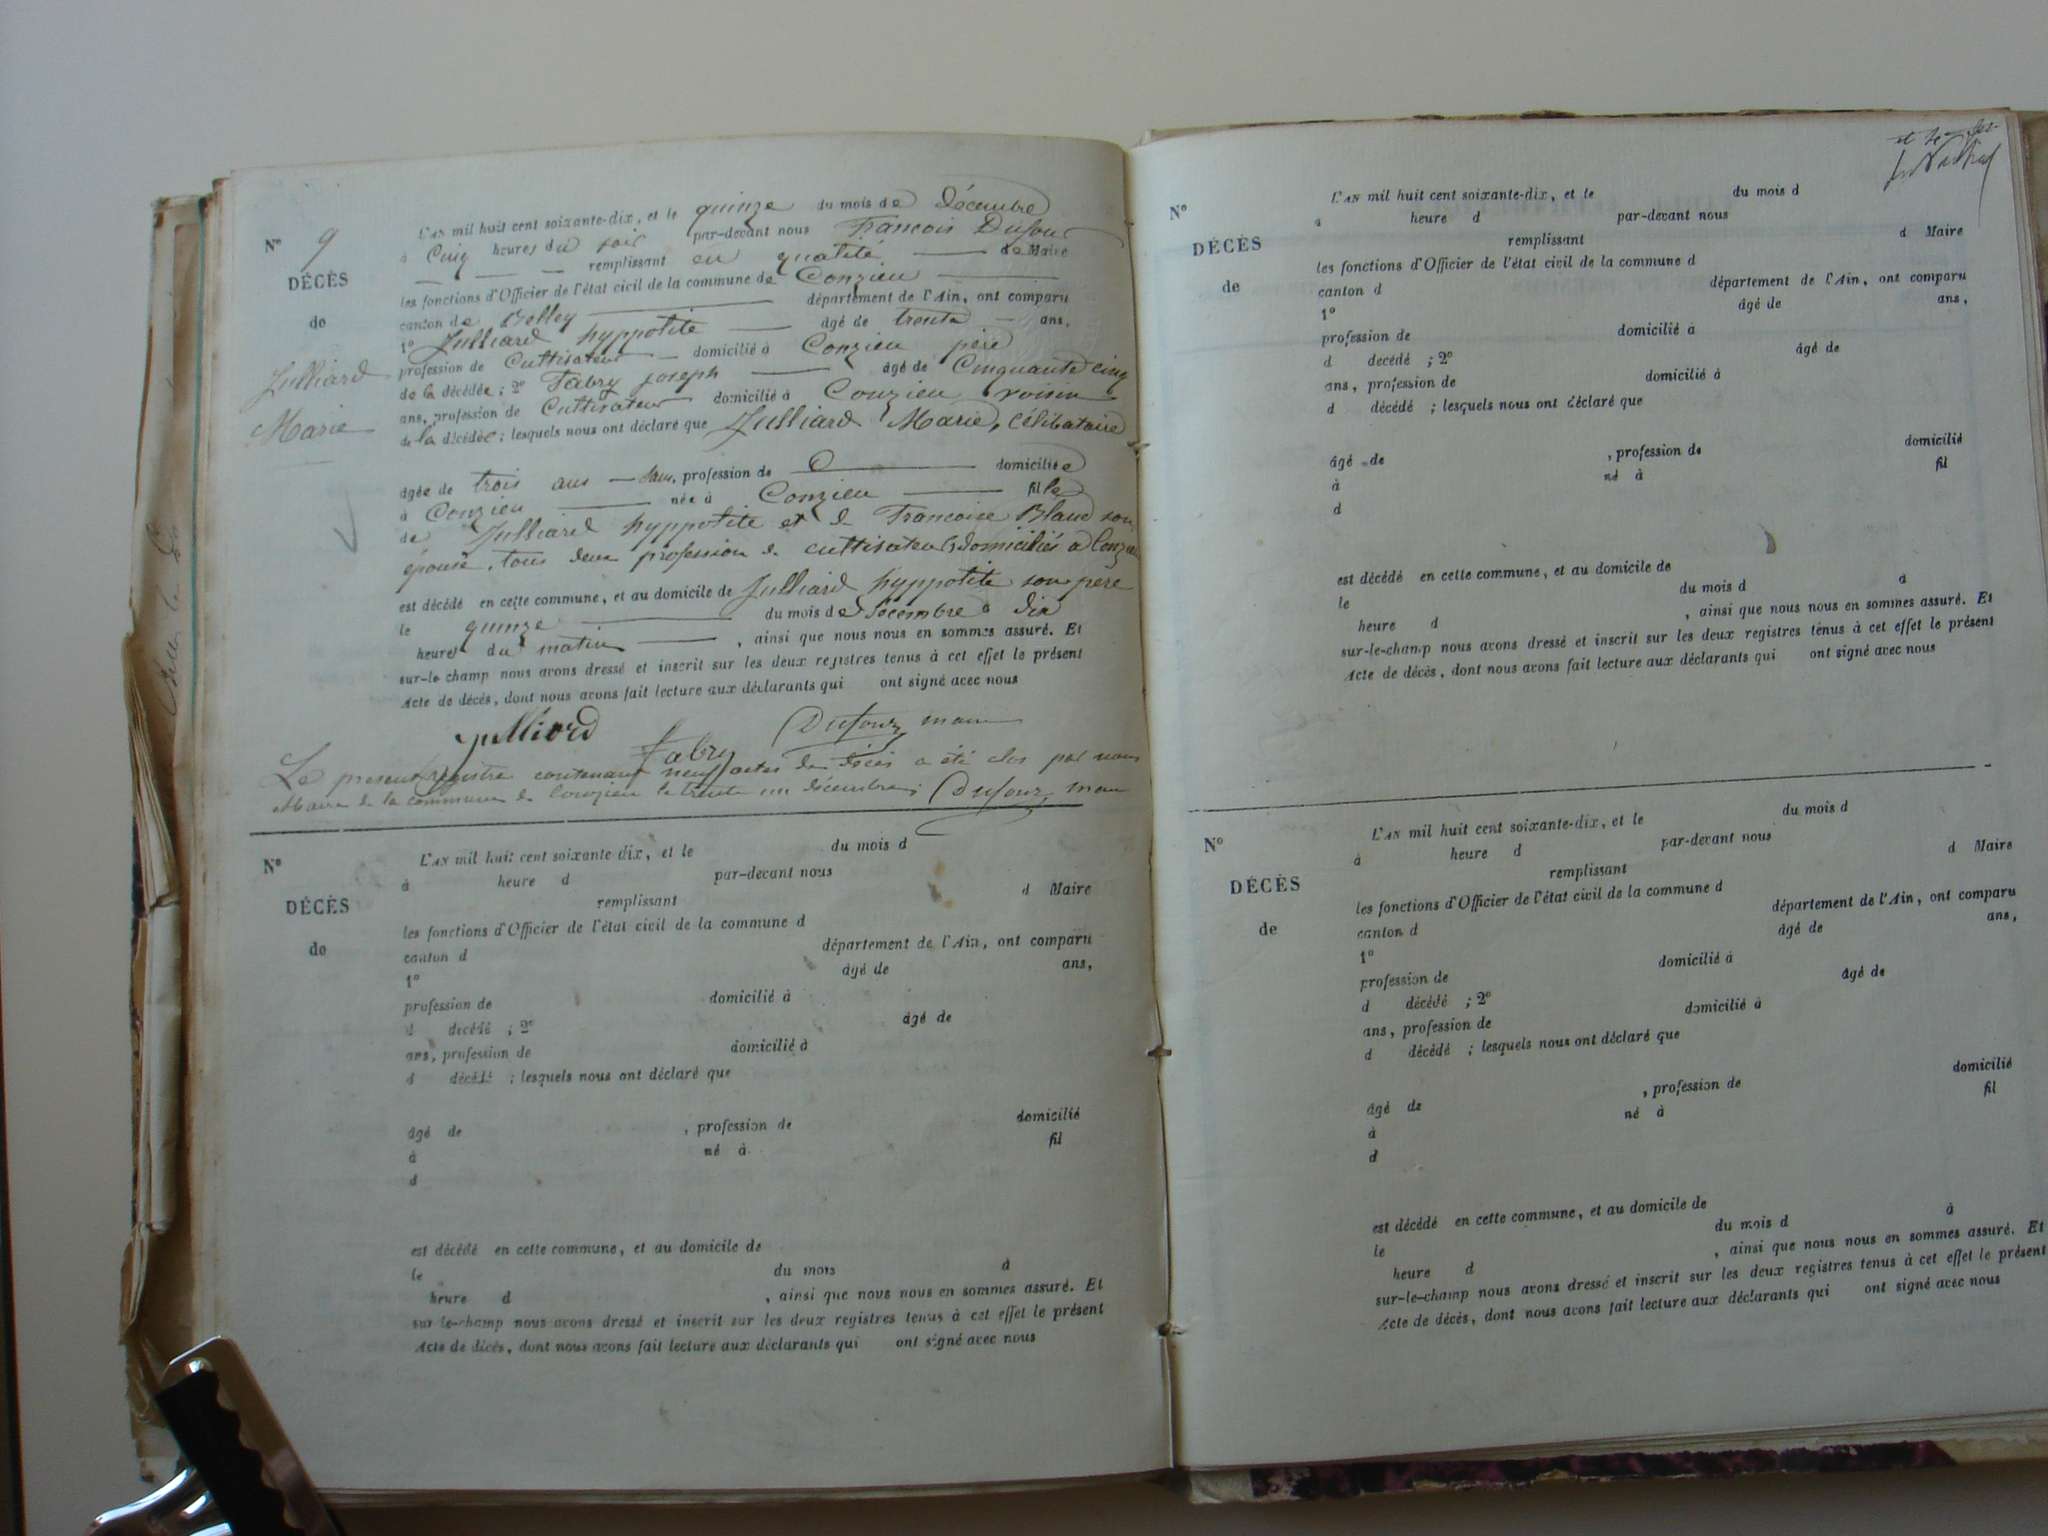 L'AN mil huit cent soixante-dix, et le quinze du mois de Décembre
à Cinq heures du soir par-devant nous Francois Dufour
remplissant en qualité de Maire
les fonctions d'Officier de l'état civil de la commune de Conzieu
canton de Belley département de l'Ain, ont comparu
1º Julliard hyppolite âgé de trente ans,
profession de Cultivateur domicilié à Conzieu père
de la décédée ; 2º Fabry joseph âgé de Cinquante cinq
ans, profession de Cultivateur domicilié à Conzieu voisin
de la décédée ; lesquels nous ont déclaré que Julliard Marie, Célibataire
Nº 9
DÉCÈS
de
Julliard
Marie
âgée de trois ans sans, profession de domiciliée
à Conzieu née à Conzieu fille
de Julliard hyppolite et de Francoise Blanc son
épouse, tous deux profession de cultivateurs domiciliés à Conzieu
est décédé en cette commune, et au domicile de Julliard hyppolite son père
le quinze du mois de Décembre à dix
heures du matin , ainsi que nous nous en sommes assuré. Et
sur-le champ nous avons dressé et inscrit sur les deux registres tenus à cet effet le présent
Acte de décès, dont nous avons fait lecture aux déclarants qui ont signé avec nous
julliard
Fabry
Dufour, maire
Le présent registre contenant neuf actes de décès a été clos par nous
Maire de la commune de Conzieu le trente un décembre, Dufour, maire
Nº
DÉCÈS
de
L'AN mil huit cent soixante dix, et le du mois d
à heure d par-devant nous
remplissant d Maire
les fonctions d'Officier de l'état civil de la commune d
canton d département de l'Ain, ont comparu
1º âgé de ans,
profession de domicilié à
d décédé ; 2º âgé de
ans, profession de domicilié à
d décédé ; lesquels nous ont déclaré que
âgé de , profession de domicilié
à né à fil
d
est décédé en cette commune, et au domicile de
le du mois à
heure d , ainsi que nous nous en sommes assuré. Et
sur le-champ nous avons dressé et inscrit sur les deux registres tenus à cet effet le présent
Acte de décès, dont nous avons fait lecture aux déclarants qui ont signé avec nous
Nº
DÉCÈS
de
L'AN mil huit cent soixante-dix, et le du mois d
à heure d par-devant nous
remplissant d Maire
les fonctions d'Officier de l'état civil de la commune d
canton d département de l'Ain, ont comparu
1º âgé de ans,
profession de domicilié à
d décédé ; 2º âgé de
ans, profession de domicilié à
d décédé ; lesquels nous ont déclaré que
âgé de , profession de domicilié
à né à fil
d
est décédé en cette commune, et au domicile de
le du mois d à
heure d , ainsi que nous nous en sommes assuré. Et
sur-le-champ nous avons dressé et inscrit sur les deux registres tenus à cet effet le présent
Acte de décès, dont nous avons fait lecture aux déclarants qui ont signé avec nous
Nº
DÉCÈS
de
L'AN mil huit cent soixante-dix, et le du mois d
à heure d par-devant nous
remplissant d Maire
les fonctions d'Officier de l'état civil de la commune d
canton d département de l'Ain, ont comparu
1º âgé de ans,
profession de domicilié à
d décédé ; 2º âgé de
ans, profession de domicilié à
d décédé ; lesquels nous ont déclaré que
âgé de , profession de domicilié
à né à fil
d
est décédé en cette commune, et au domicile de
le du mois d à
heure d , ainsi que nous nous en sommes assuré. Et
sur-le-champ nous avons dressé et inscrit sur les deux registres tenus à cet effet le présent
Acte de décès, dont nous avons fait lecture aux déclarants qui ont signé avec nous